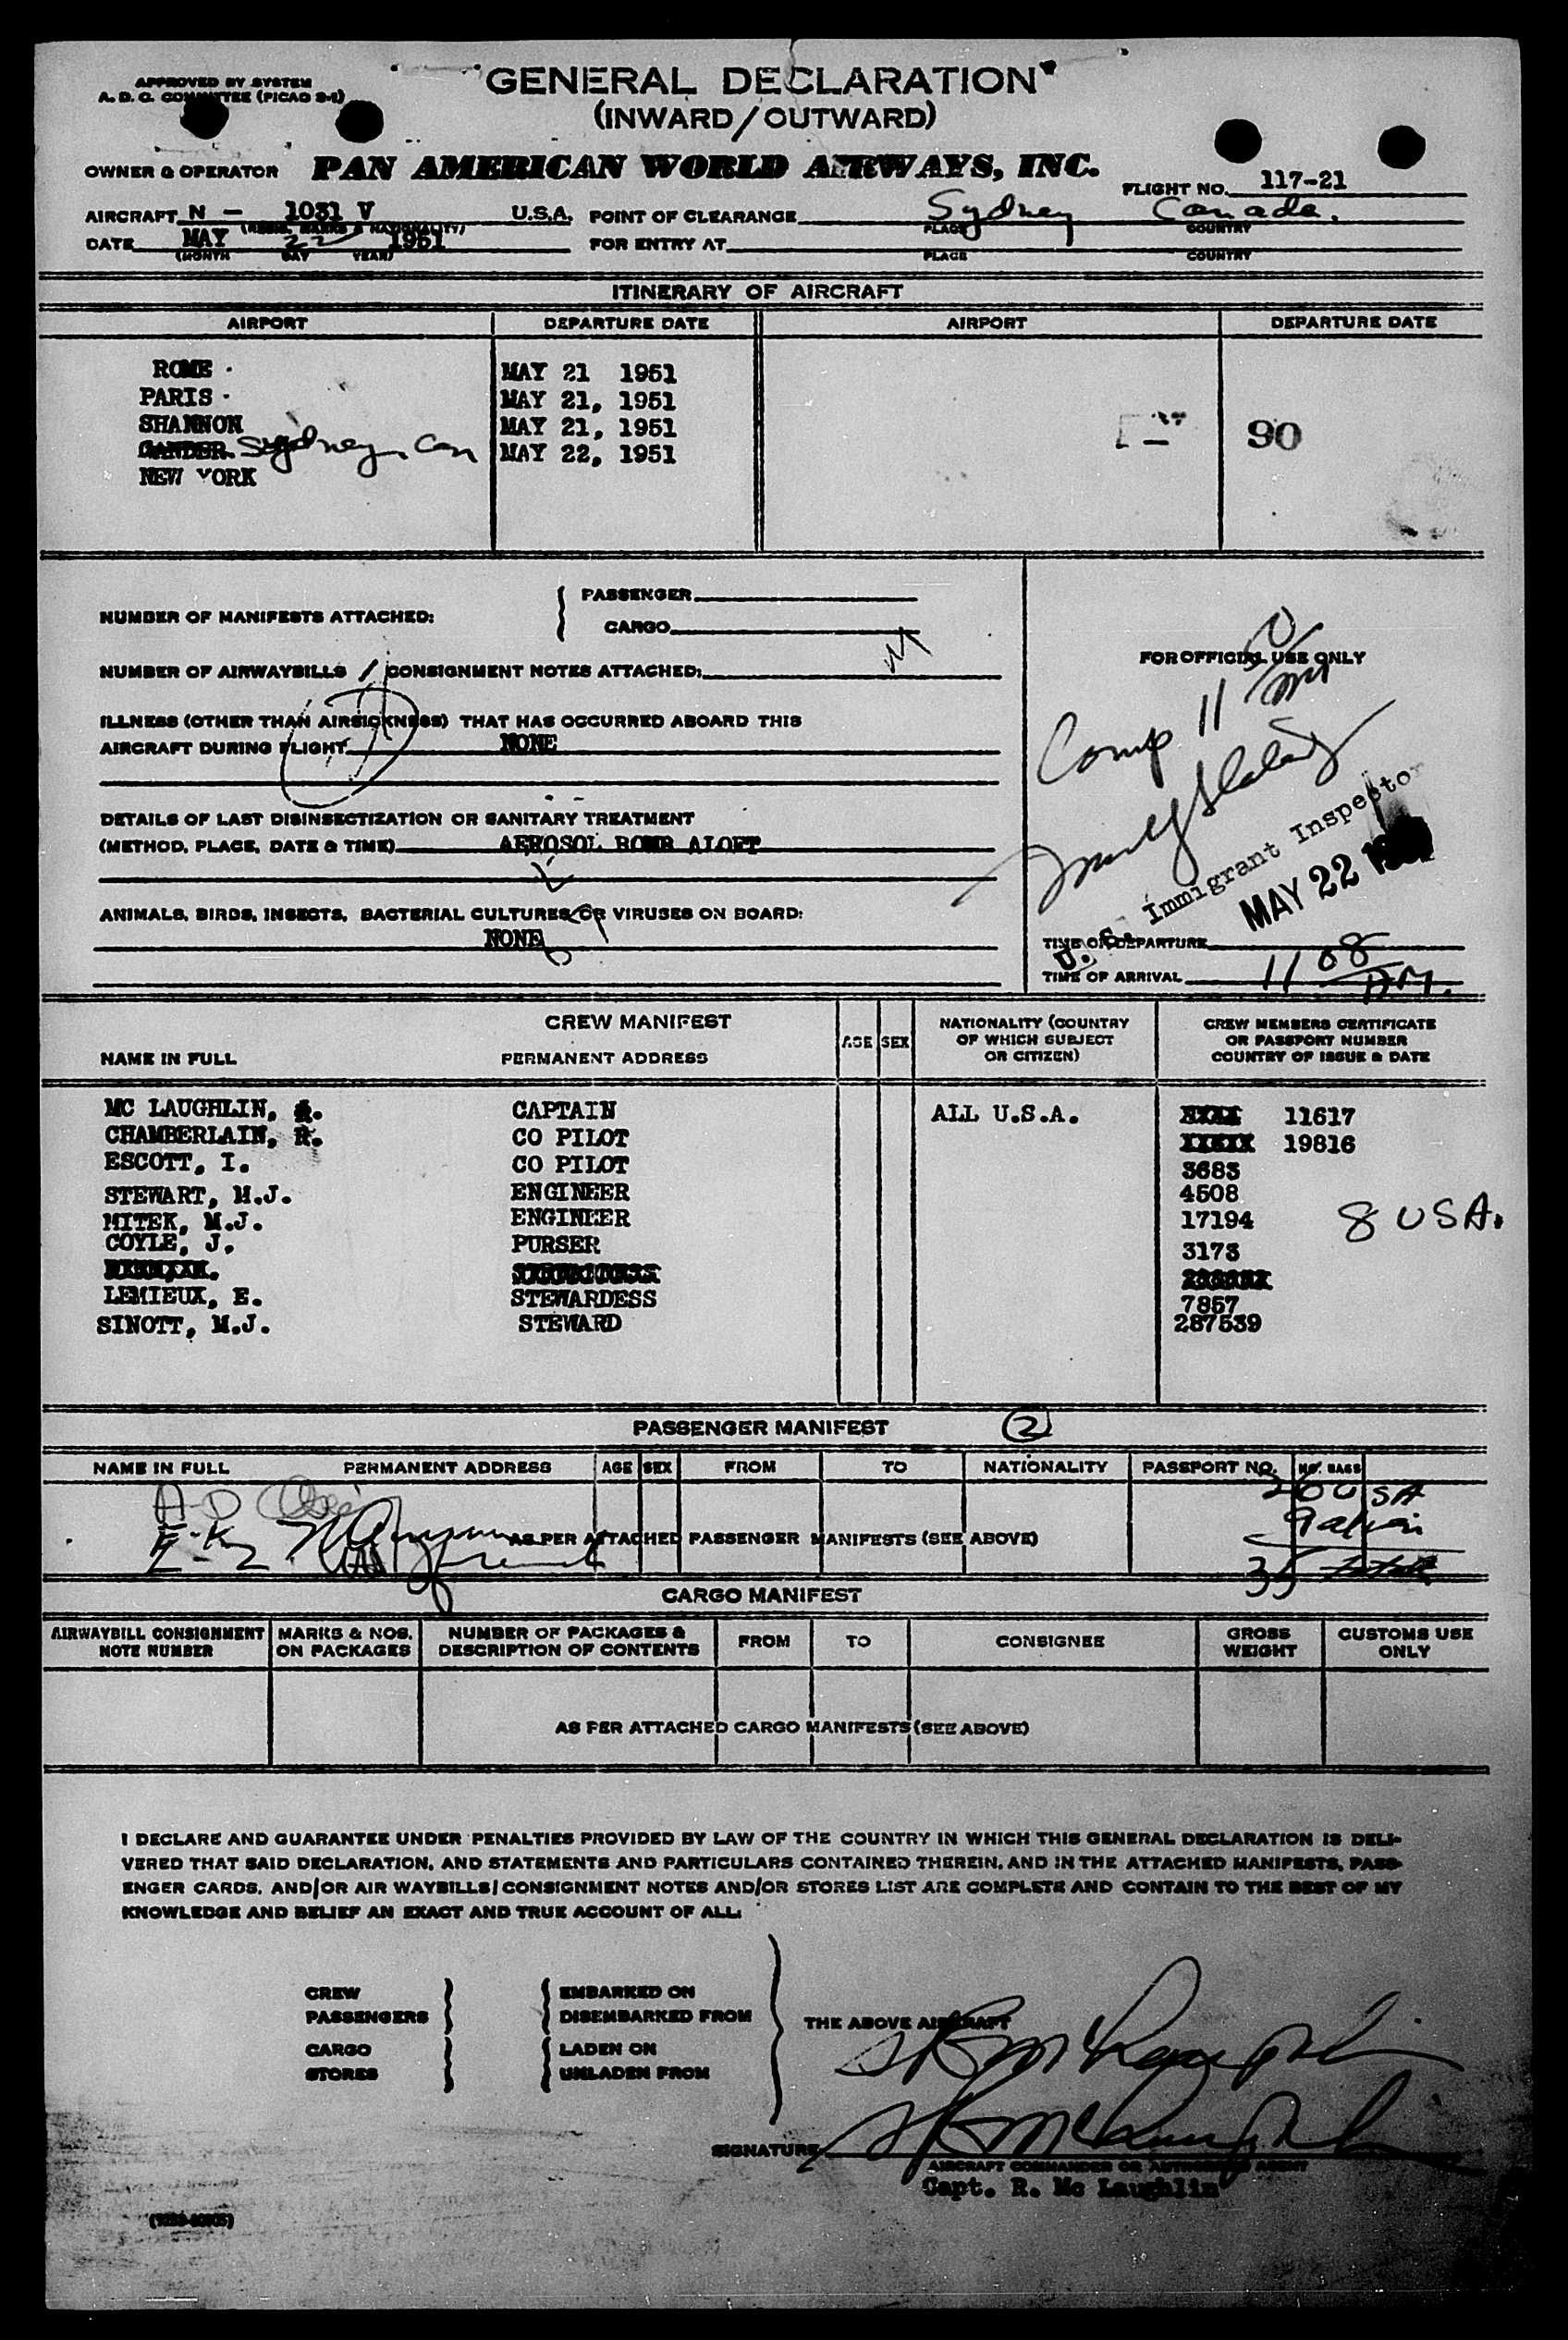 APPROVED BY SYSTEM
A. D. C. COMMITTEE (PICAO 2-1)
GENERAL DECLARATION
(INWARD/OUTWARD)
OWNER & OPERATOR PAN AMERICAN WORLD AIRWAYS, INC.
FLIGHT NO. 117-21
AIRCRAFT N - 1031 V U.S.A. POINT OF CLEARANCE Sydney Canada.
PLACE COUNTRY
DATE MAY 22 1951 FOR ENTRY AT
(MONTH DAY YEAR) PLACE COUNTRY
ITINERARY OF AIRCRAFT
AIRPORT DEPARTURE DATE AIRPORT DEPARTURE DATE
ROME MAY 21 1951
PARIS MAY 21, 1951
SHANNON MAY 21, 1951 90
GANDER Sydney, Can MAY 22, 1951
NEW YORK
NUMBER OF MANIFESTS ATTACHED: PASSENGER
CARGO
NUMBER OF AIRWAYBILLS / CONSIGNMENT NOTES ATTACHED:
FOR OFFICIAL USE ONLY
Comp 11
ILLNESS (OTHER THAN AIRSICKNESS) THAT HAS OCCURRED ABOARD THIS
AIRCRAFT DURING FLIGHT NONE
DETAILS OF LAST DISINSECTIZATION OR SANITARY TREATMENT
(METHOD, PLACE, DATE & TIME) AEROSOL BOMB ALOFT
U. S. Immigrant Inspector
MAY 22
ANIMALS, BIRDS, INSECTS, BACTERIAL CULTURES OR VIRUSES ON BOARD:
NONE
TIME OF DEPARTURE
TIME OF ARRIVAL 11 08 AM.
CREW MANIFEST
NAME IN FULL PERMANENT ADDRESS AGE SEX NATIONALITY (COUNTRY OF WHICH SUBJECT OR CITIZEN) CREW MEMBERS CERTIFICATE OR PASSPORT NUMBER COUNTRY OF ISSUE & DATE
MC LAUGHLIN, CAPTAIN ALL U.S.A. 11617
CHAMBERLAIN, R. CO PILOT 19816
ESCOTT, I. CO PILOT 3683
STEWART, M.J. ENGINEER 4508
MITEK, M.J. ENGINEER 17194 8 USA.
COYLE, J. PURSER 3173
LEMIEUX, E. STEWARDESS 7857
SINOTT, M.J. STEWARD 287539
PASSENGER MANIFEST 2
NAME IN FULL PERMANENT ADDRESS AGE SEX FROM TO NATIONALITY PASSPORT NO. NO. BAGS
A-D 26 USA
E-K 9 alien
AS PER ATTACHED PASSENGER MANIFESTS (SEE ABOVE)
35 total
CARGO MANIFEST
AIRWAYBILL CONSIGNMENT NOTE NUMBER MARKS & NOS. ON PACKAGES NUMBER OF PACKAGES & DESCRIPTION OF CONTENTS FROM TO CONSIGNEE GROSS WEIGHT CUSTOMS USE ONLY
AS PER ATTACHED CARGO MANIFESTS (SEE ABOVE)
I DECLARE AND GUARANTEE UNDER PENALTIES PROVIDED BY LAW OF THE COUNTRY IN WHICH THIS GENERAL DECLARATION IS DELI-
VERED THAT SAID DECLARATION, AND STATEMENTS AND PARTICULARS CONTAINED THEREIN, AND IN THE ATTACHED MANIFESTS, PASS-
ENGER CARDS, AND/OR AIR WAYBILLS/CONSIGNMENT NOTES AND/OR STORES LIST ARE COMPLETE AND CONTAIN TO THE BEST OF MY
KNOWLEDGE AND BELIEF AN EXACT AND TRUE ACCOUNT OF ALL:
CREW EMBARKED ON
PASSENGERS DISEMBARKED FROM THE ABOVE AIRCRAFT
CARGO LADEN ON
STORES UNLADEN FROM
SIGNATURE
AIRCRAFT COMMANDER OR AUTHORIZED AGENT
Capt. R. Mc Laughlin